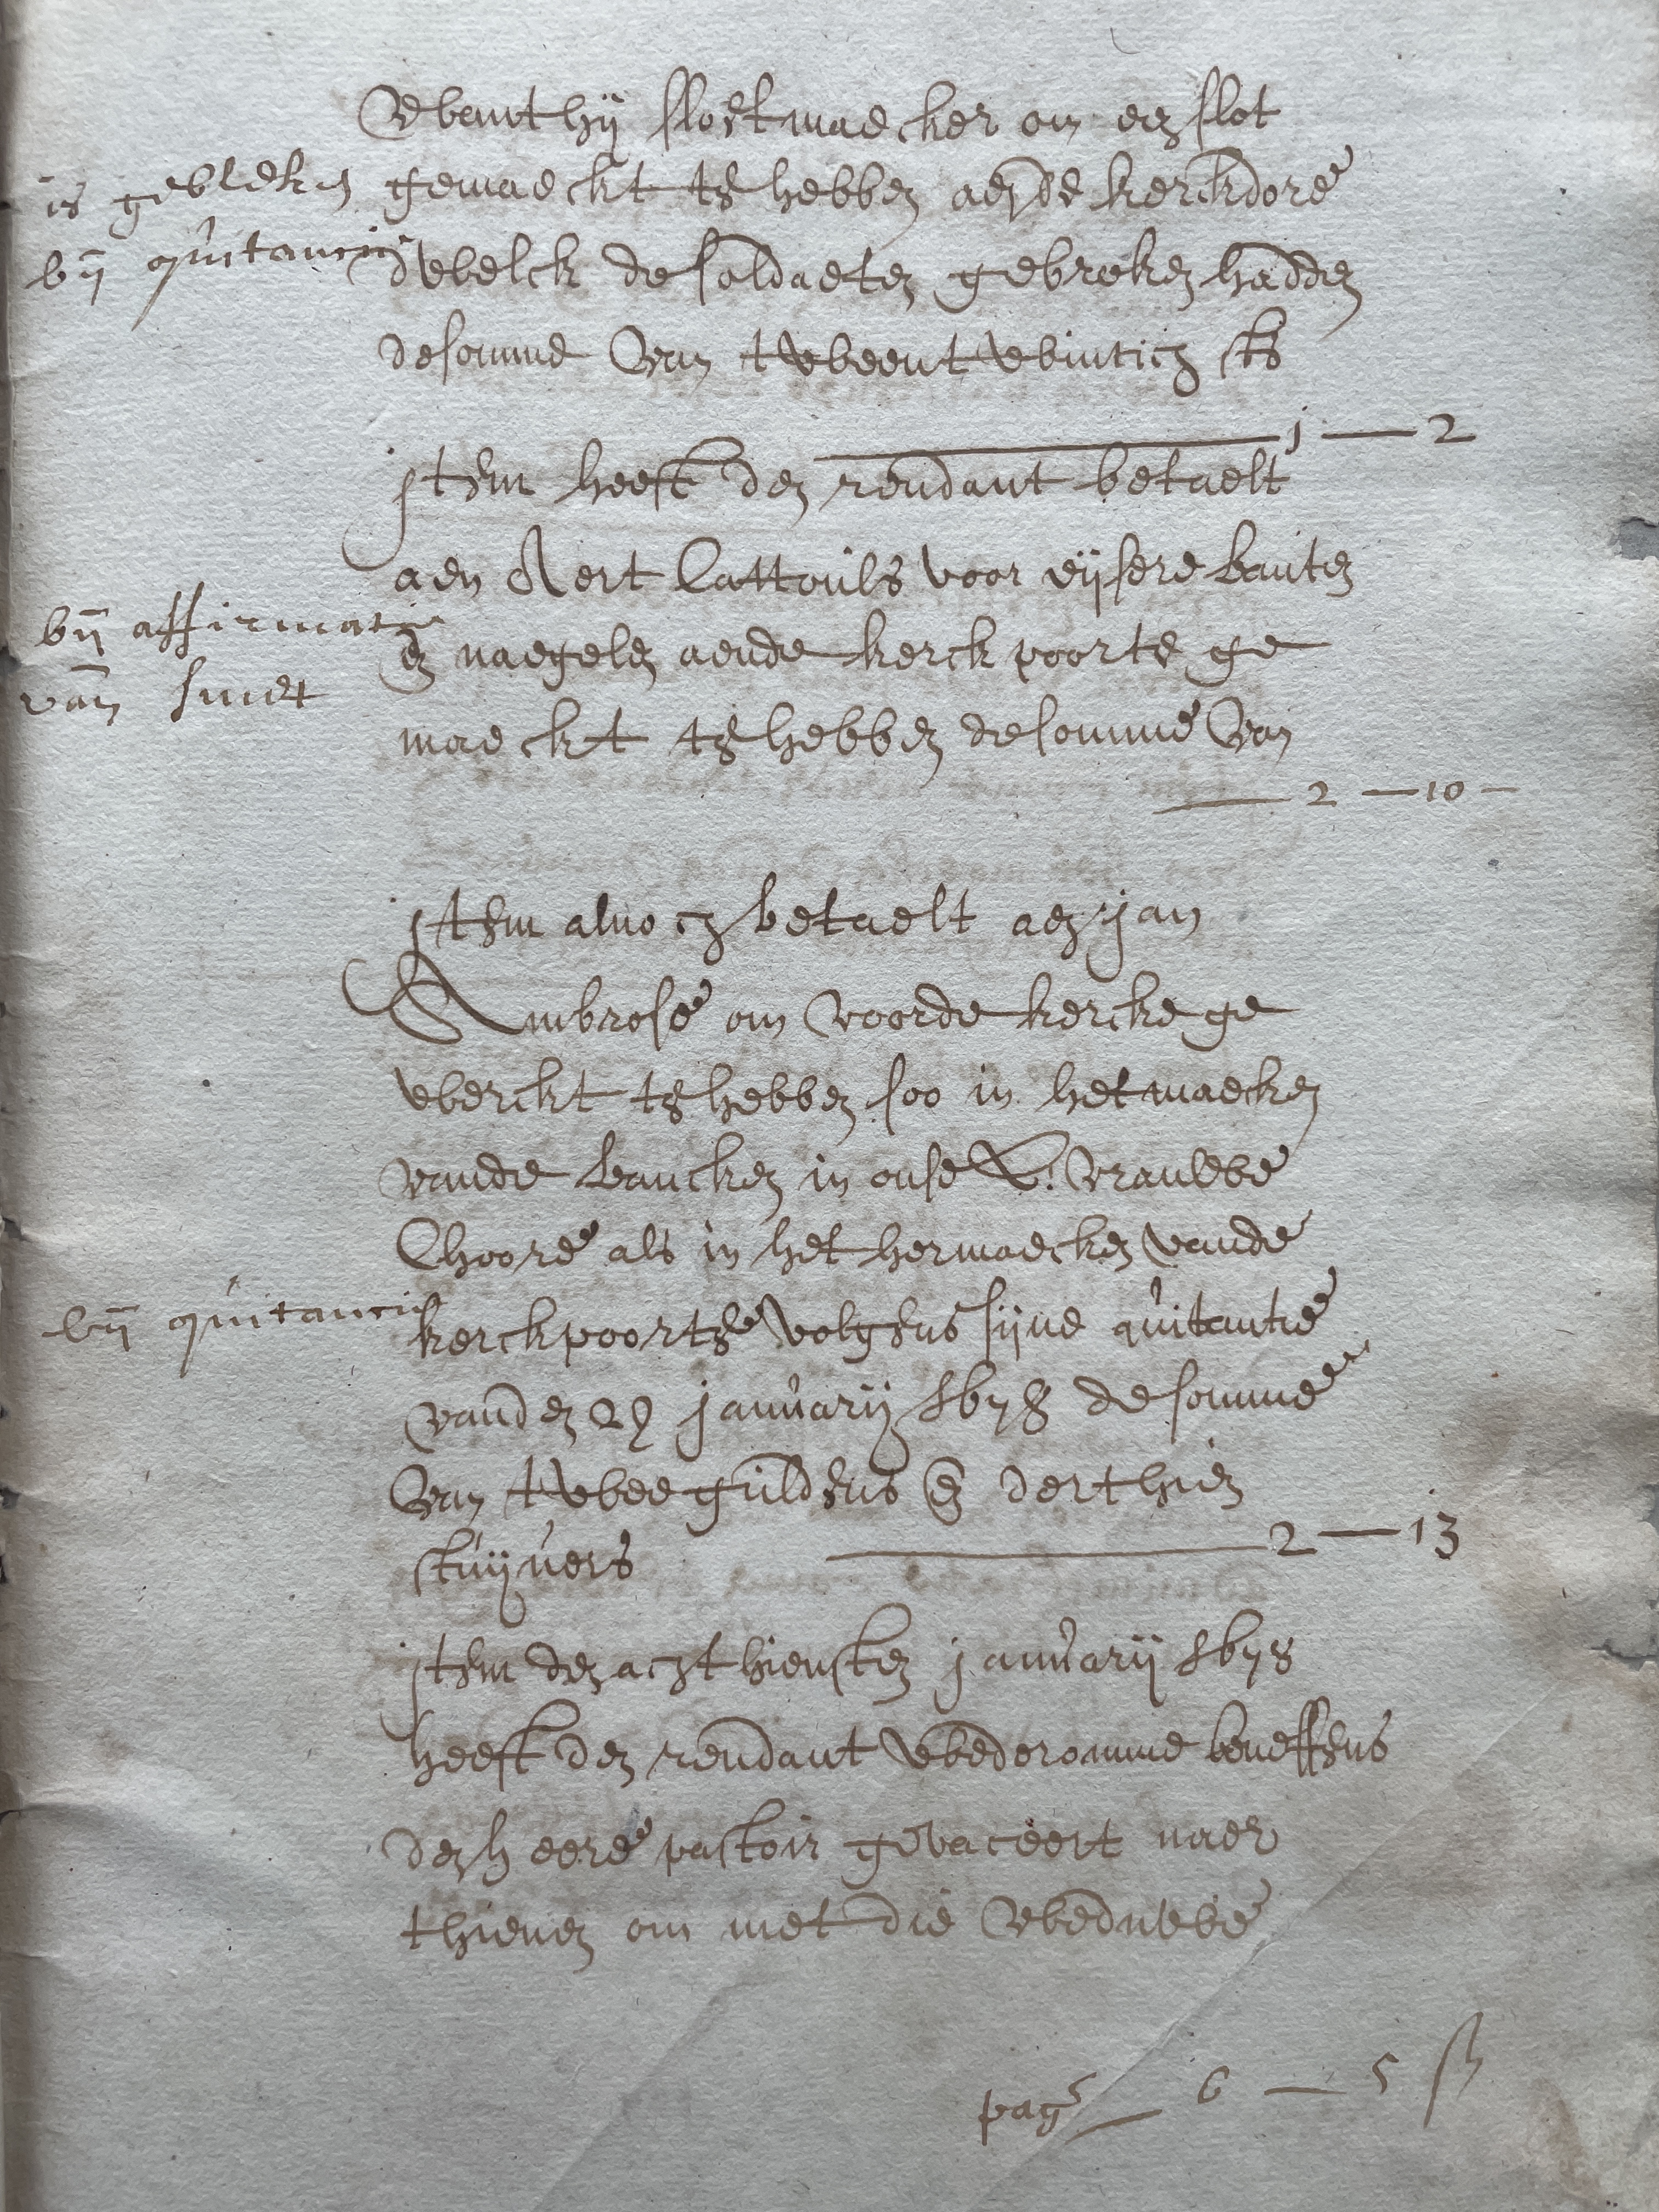 Wanthij slostmaecker om een slot
is gebleken
bij quitancie
gemaeckt te hebben aen de kerckdore
dwelck de soldaeten gebroken hadden
de somme van tweentwintich sts
1 — 2
item heeft den rendant betaelt
aen Aert Cattouls voor eijsere banten
bij affirmatie
van smet
en naegelen aende kerck poorte ge
maeckt te hebben de somme van
2 — 10 —
item alnoch betaelt aen jan
Ambrose om voorde kercke ge
werckt te hebben soo in het maecken
vande bancken in onse L. vrauwe
Choore als in het hermaecken vande
bij quitancie
kerckpoorte volgens sijne quitantie
vanden 29 januarij 1678 de somme
van twee guldens en derthien
stuijvers
2 — 13
item den achthiensten januarij 1678
heeft den rendant wederomme beneffens
den heere pastoir gevaceert naer
thienen om met die weduwe
pag 6 — 5 ß